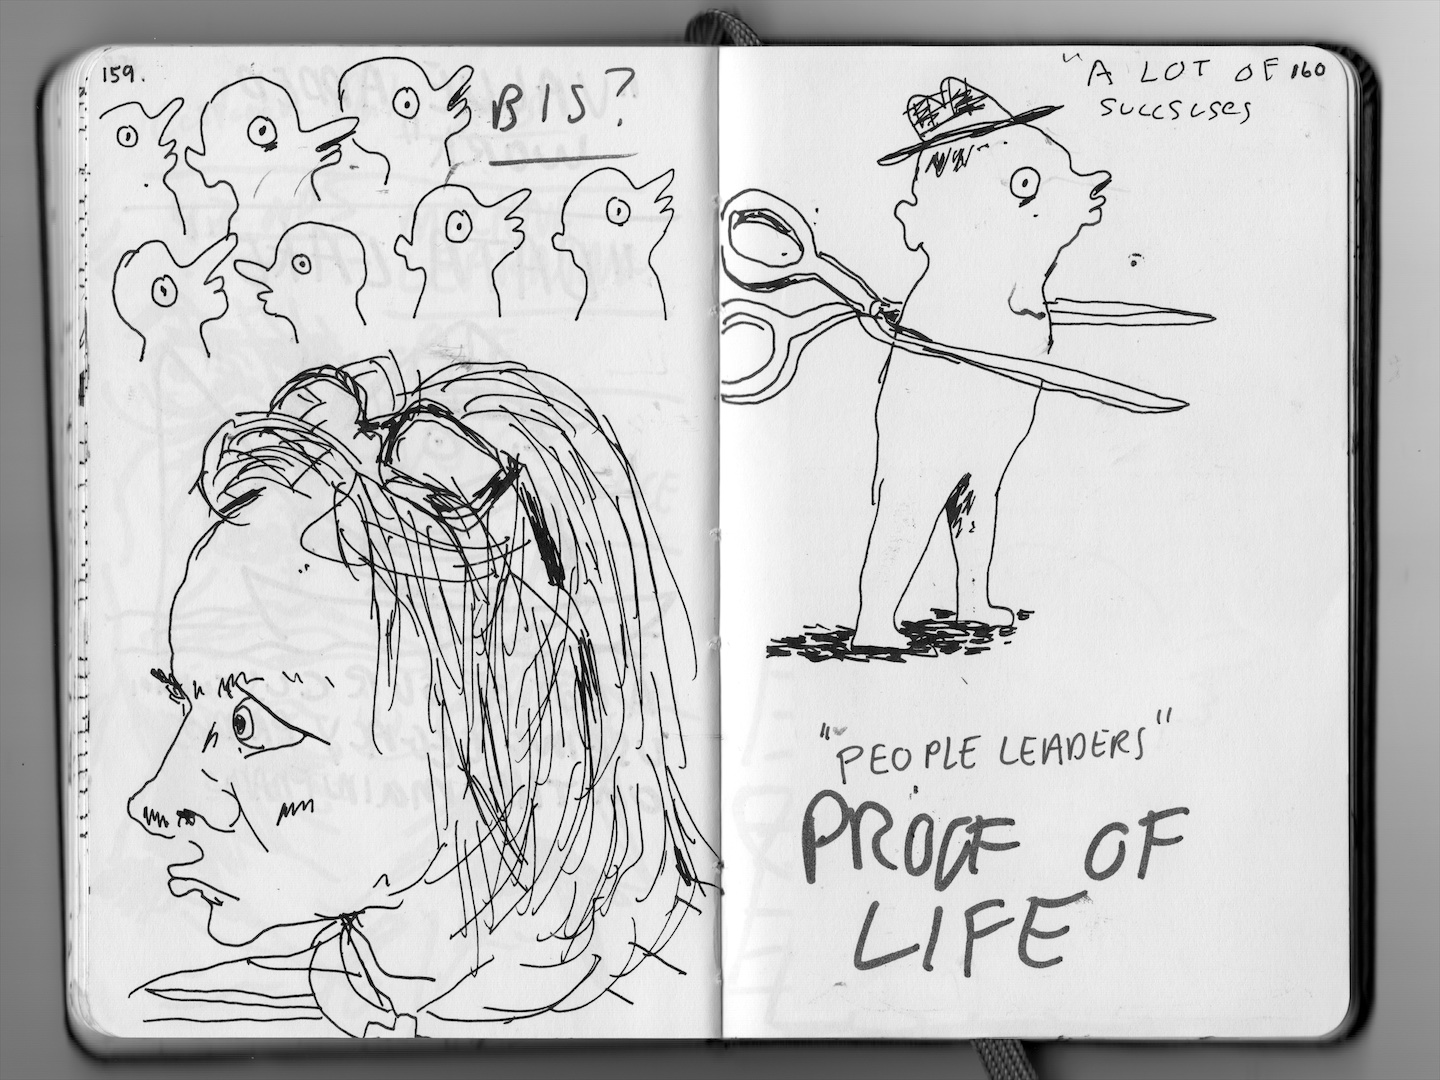 159.
BIS?
"A LOT OF
succsuses
160
"PEOPLE LEADERS"
PROOF OF
LIFE